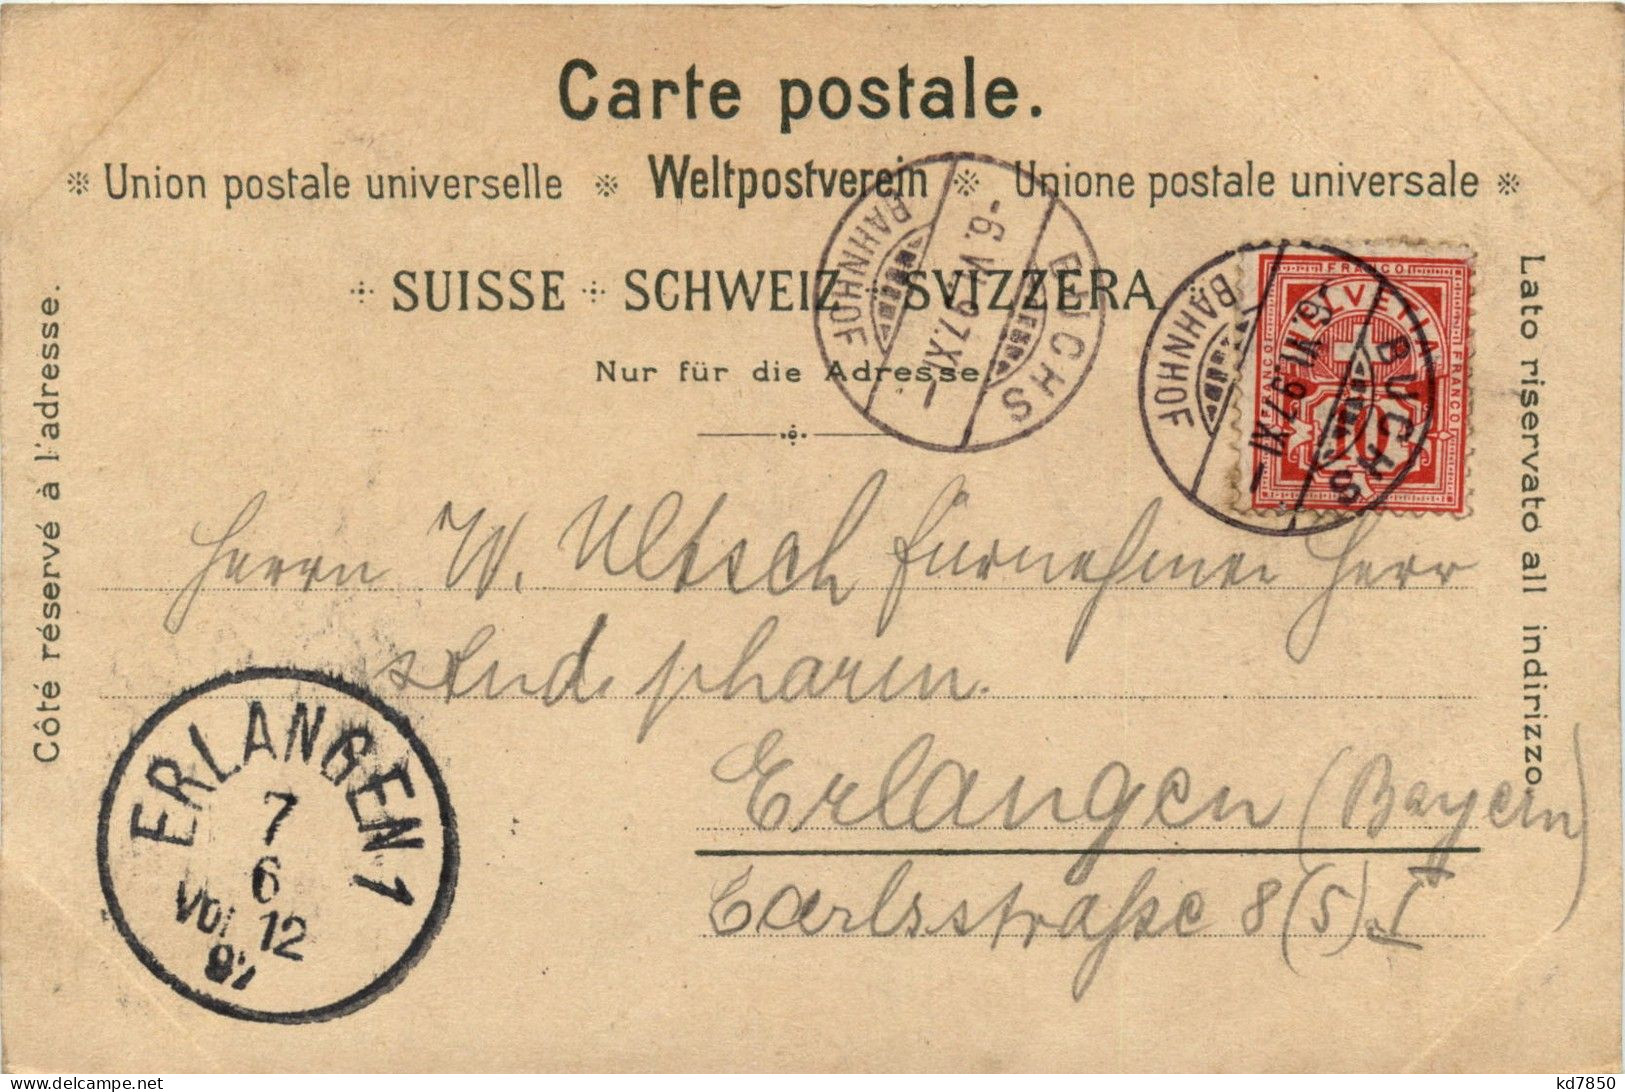 Carte postale.
※ Union postale universelle ※ Weltpostverein ※ Unione postale universale ※
SUISSE SCHWEIZ SVIZZERA
Nur für die Adresse
Côté réservé à l'adresse.
Lato riservato all indirizzo.
BUCHS
-6.VI.97.XI-
BAHNHOF
BUCHS
-6.VI.97.XI-
BAHNHOF
FRANCO
HELVETIA
FRANCO
FRANCO
10
Herrn W. Ultsch fürnehmer Herr
stud. pharm.
Erlangen (Bayern)
Carlsstraße 8 (5). I
ERLANGEN 1
7
6
Vor 12
97
kd7850